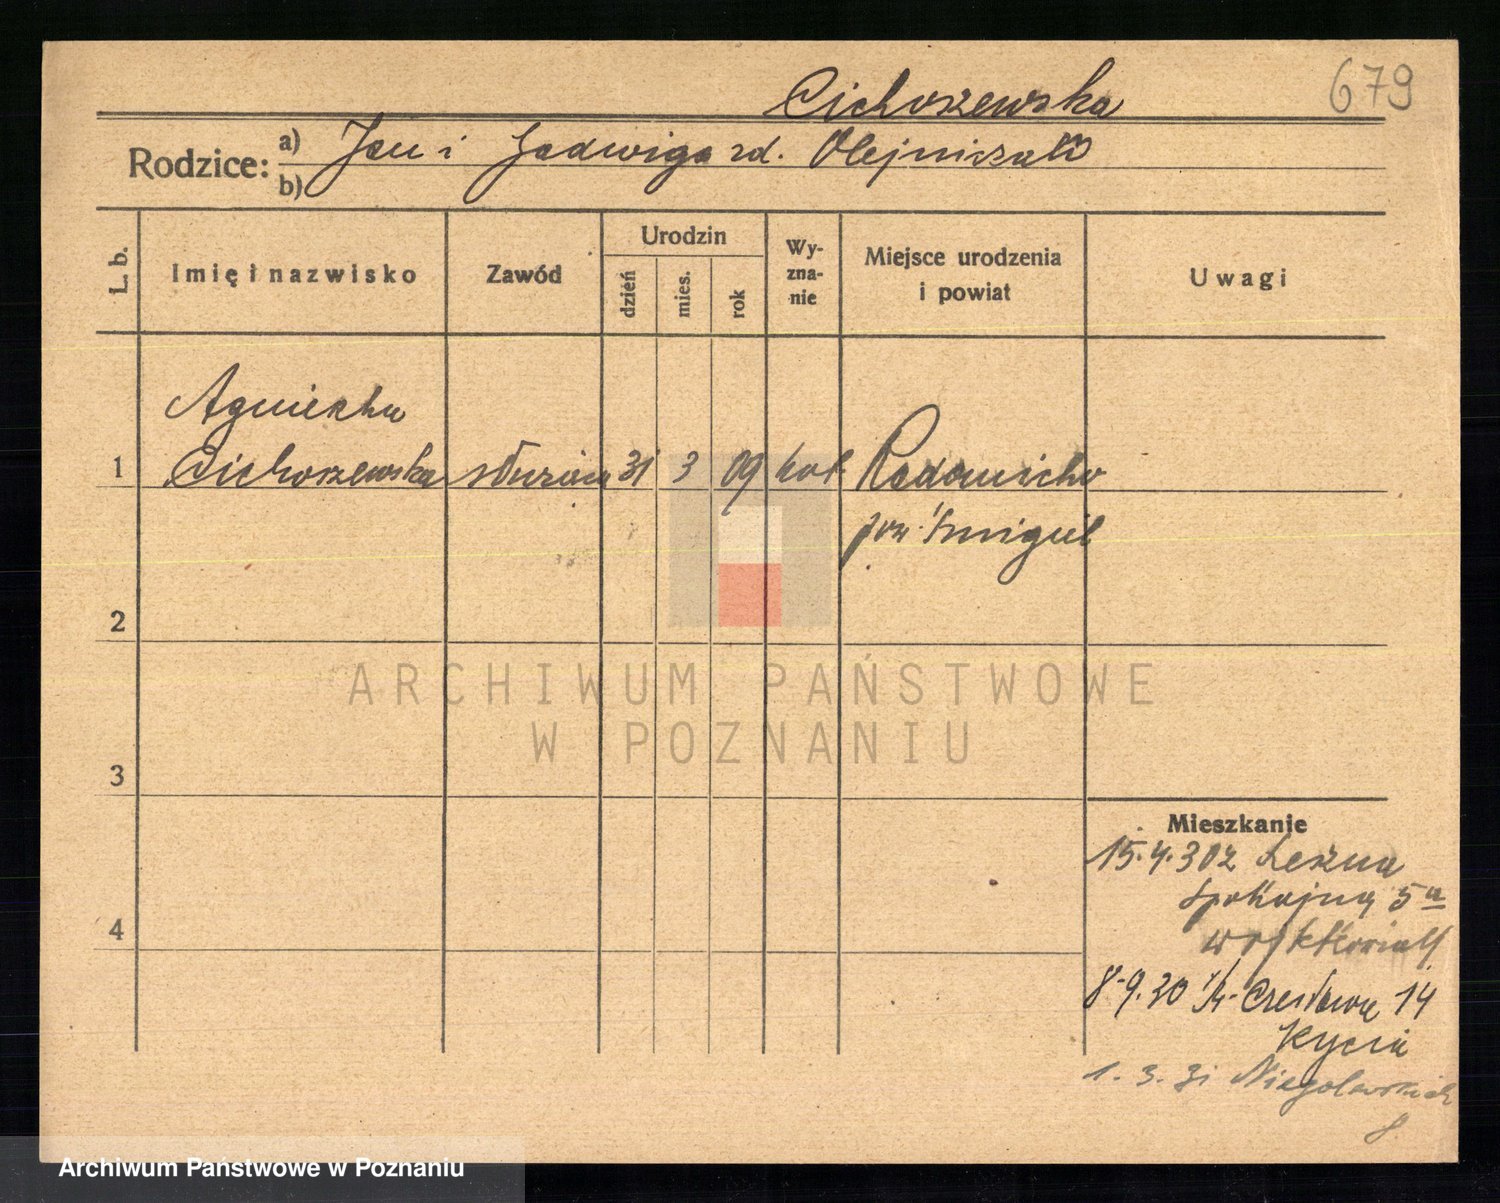 679
Cichoszewska
Rodzice: a) Jan i Jadwiga zd. Olejniczak
b)
L. b.
Imię i nazwisko
Zawód
Urodzin
dzień
mies.
rok
Wy-
zna-
nie
Miejsce urodzenia
i powiat
Uwagi
Agnieszka
1 Cichoszewska służąca 31 3 09 kat Radomicko
pow. Śmigiel
2
ARCHIWUM PAŃSTWOWE
W POZNANIU
3
Mieszkanie
15.4.30 z Leszna
Spokojna 5a
4
8.9.30 Czesława 14
Kycia
1.3.31 Niegolewskich
8.
Archiwum Państwowe w Poznaniu